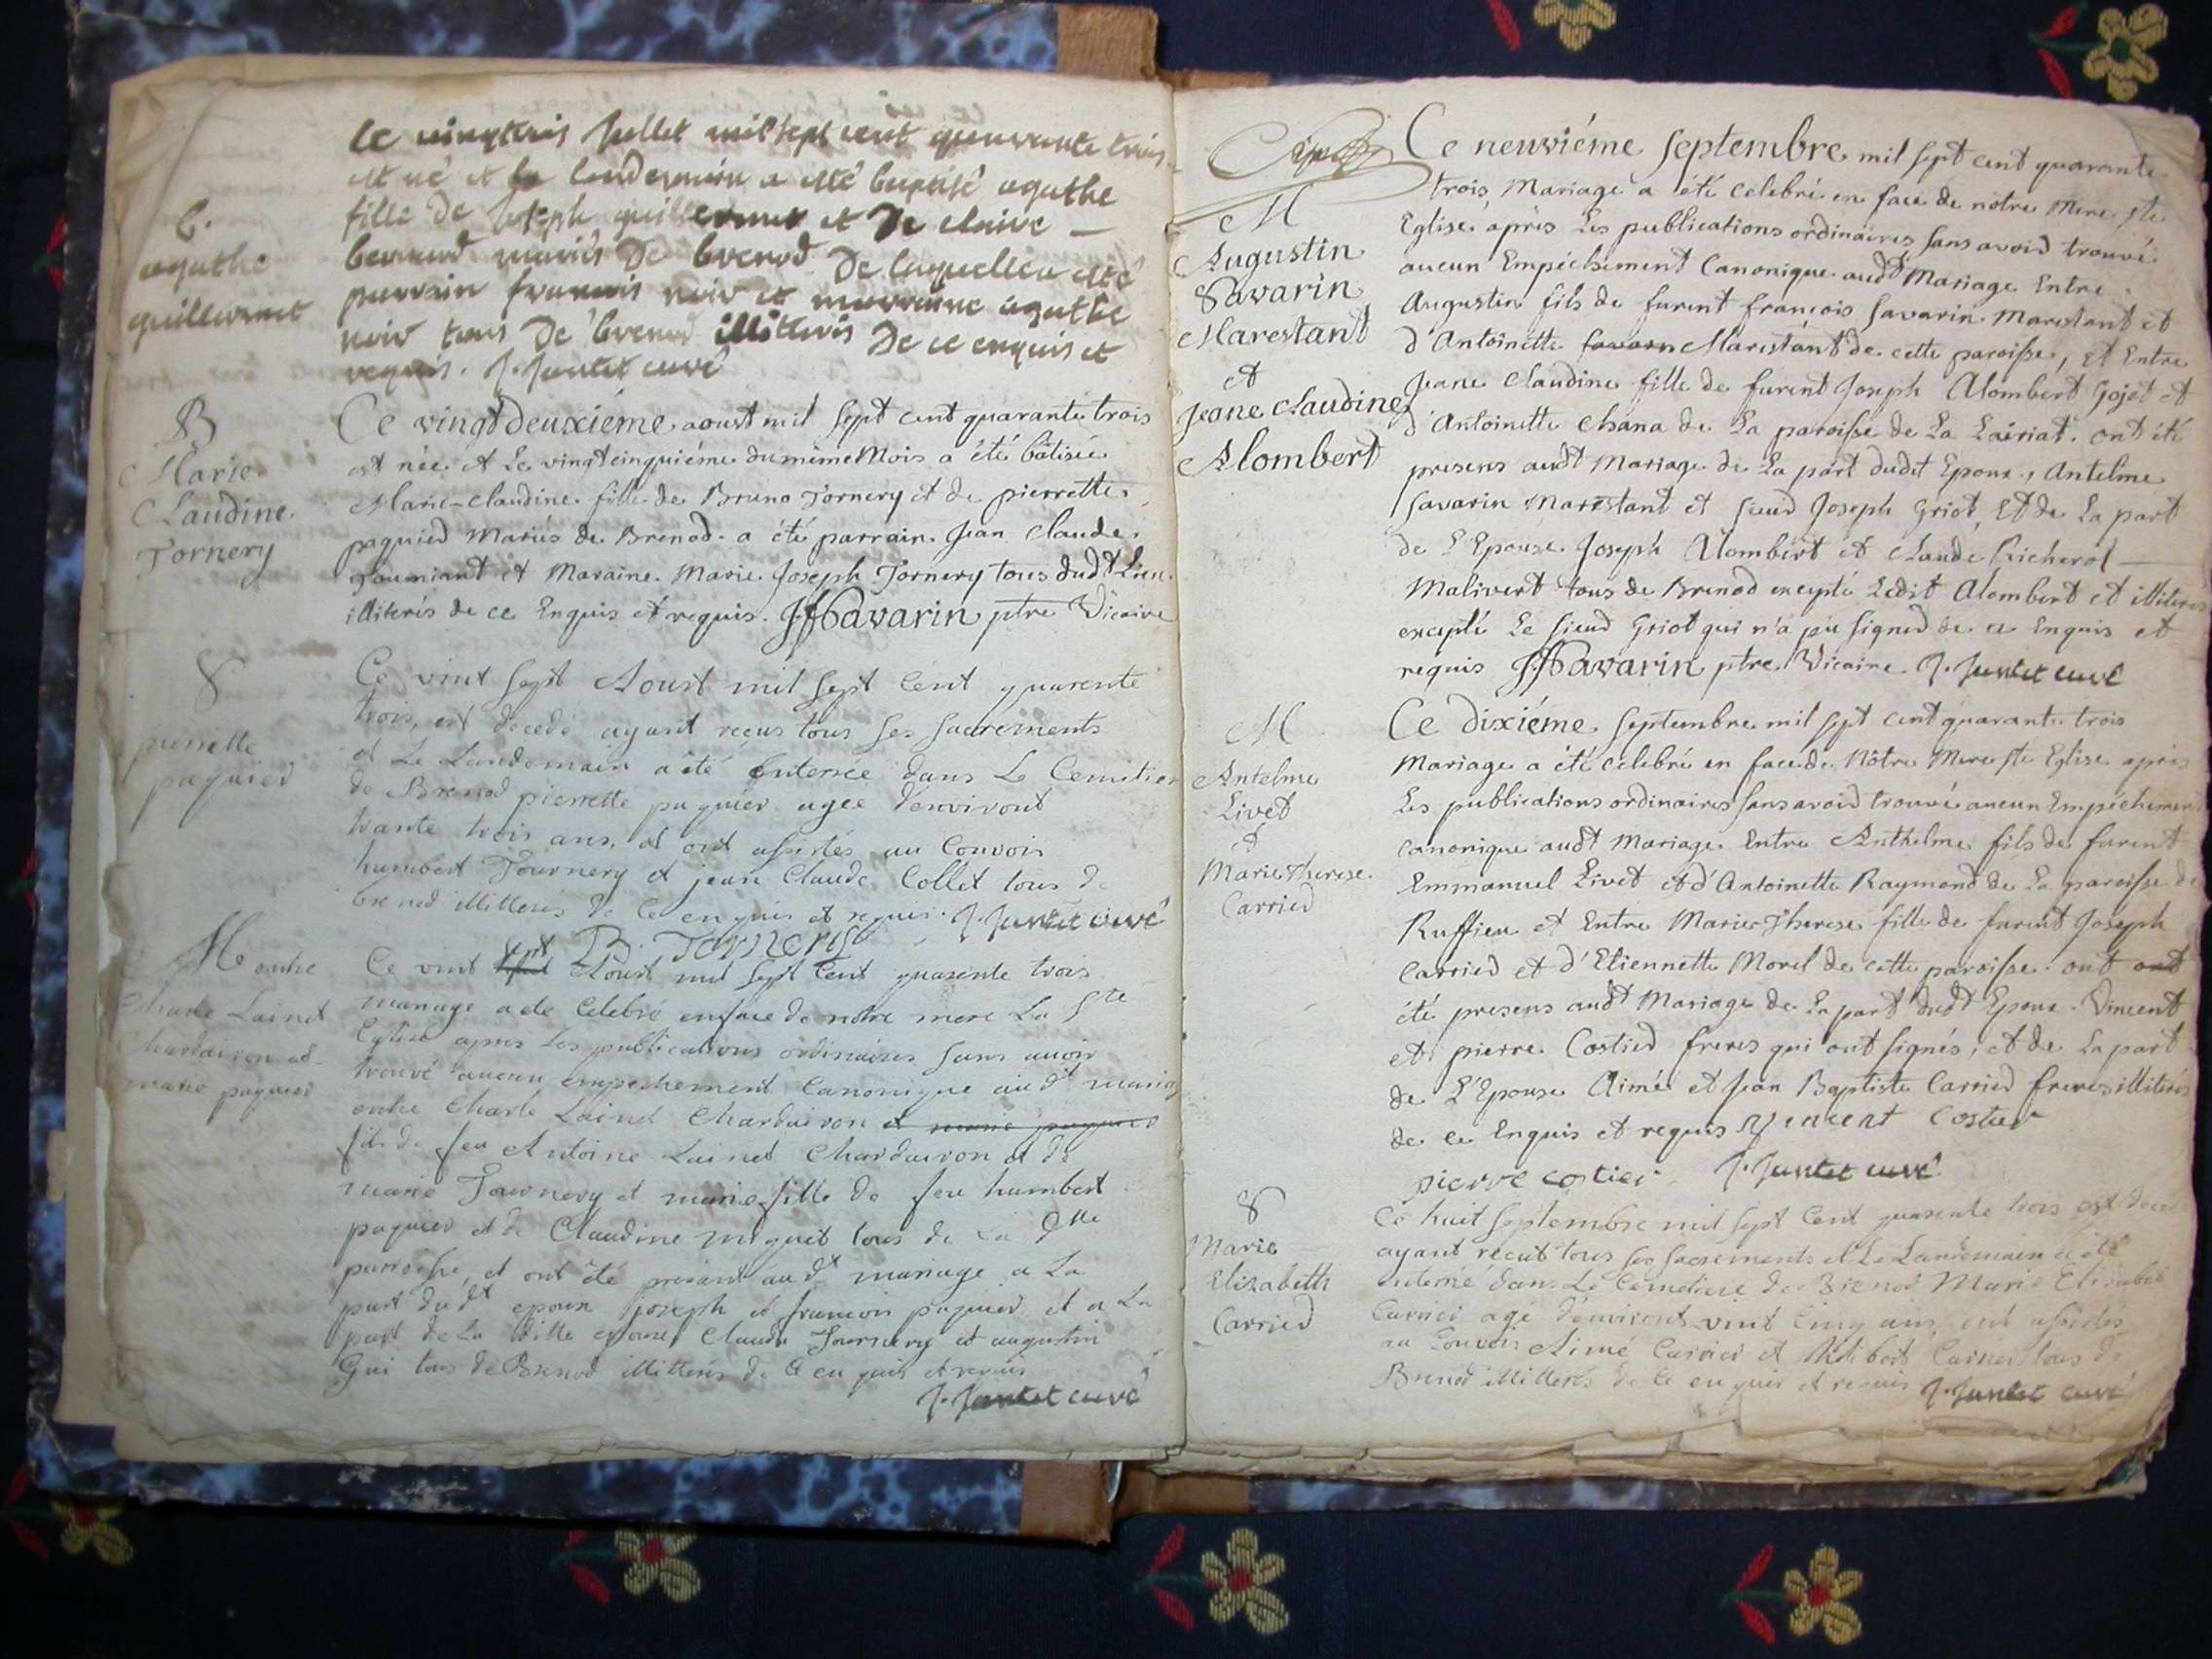 Ce vingtrois Juillet mil sept cent quarante trois
est né et le landemain a esté baptisé agathe
fille de Joseph guillermet et De claire —
bernard mariés De brenod De laquelle a esté
parrain francois noir et marraine agathe
noir tous De brenod illiteris De ce enquis et
requis. J. Jantet curé
b.
agathe
guillermet
B
Marie
Claudine
Tornery
Ce vingt deuxiéme aoust mil sept cent quarante trois
est née et Le vingt cinquiéme du même Mois a été bâtisée
Marie-claudine fille de Bruno Tornery et de pierrette
paquied Mariés de Brenod. a été parrain Jean Claude
et Maraine Marie Joseph Tornery tous dudt Lieu
illiterés de ce Enquis et requis. JfSavarin ptre Vicaire
S
pierrette
paquied
Ce vint sept Aoust mil sept Cent quarente
trois, est décedé ayant reçus tous ses sacrements
et Le Landemain a été Enterrée dans Le Cemitier
de Brenod pierrette paquier agee d'environt
trante trois ans, et ont assistés au Convois
humbert Tournery et jean Claude Collet tous de
brenod illitterés de ce enquis et requis. J. Jantet curé
B. Tornery
M entre
Charle Lainet
Chardairon et
marie paquier
Ce vint sept Aoust mil sept Cent quarente trois
mariage a été Celebré en face de notre mere La Ste
Eglise apres Les publications ordinaires sans avoir
trouvé aucun empechement Canonique au dt mariage
entre Charle Lainet Chardairon et marie paquier
fils de feu Antoine Lainet Chardairon et de
marie Tournery et marie fille de feu humbert
paquier et de Claudine miguet tous de La dtte
paroisse, et ont été presant au dt mariage a La
part du dt epoux joseph et francois paquier et a La
part de La ditte epouse Claude Tournery et augustin
Gui tous de Brenod illitterés de Ce enquis et requis
J. Jantet curé
M
Augustin
Savarin
Marestant
et
Jeane Claudine
Alombert
Ce neuviéme septembre mil sept cent quarante
trois Mariage a été celebré en face de nôtre Mere ste
Eglise après Les publications ordinaires sans avoid trouvé
aucun Empéchement Canonique audt Mariage Entre
Augustin fils de furent françois Savarin Marestant et
d'Antoinette savarin Marestant de cette paroisse, Et Entre
Jeane Claudine fille de furent Joseph Alombert Gojet et
d'Antoinette Chana de La paroisse de La Lairiat. ont été
presens audt Mariage de La part dudit Epoux, Antelme
Savarin Marestant et sieud Joseph Griot, Et de La part
de L'Epouse Joseph Alombert et Claude Richerot —
Malivert tous de Brenod excepté Ledit Alombert et illiterés
excepté Le sieud Griot qui n'a pû signed de ce Enquis et
requis JfSavarin ptre Vicaire. J. Jantet curé
M
Antelme
Livet
et
Marie Therese
Carried
Ce dixiéme septembre mil sept cent quarante trois
Mariage a été célebré en face de Nôtre Mere ste Eglise après
Les publications ordinaires sans avoid trouvé aucun Empéchement
canonique audt Mariage Entre Anthelme fils de furent
Emmanuel Livet et d'Antoinette Raymond de La paroisse de
Ruffieu et Entre Marie-Therese fille de furent Joseph
Carried et d'Etiennette Morel de cette paroisse. ont ont
été presens audt Mariage de La part dudt Epoux. Vincent
et pierre Costied freres qui ont signés, et de La part
de L'Epouse Aimé et Jean Baptiste Carried freres illiterés
de ce Enquis et requis Vincent Costier
pierre costier J. Jantet curé
S
Marie
Elisabeth
Carried
Ce huit septembre mil sept Cent quarente trois est décedé
ayant recut tous ses sacrements et Le Landemain a été
enterrée dans Le Cemetiere de Brenod Marie Elisabet
Carrier agé d'environt vint cinq ans, ont assistés
au Convois Aimé Carrier et Carrier tous de
Brenod illitterés de Ce enquis et requis J. Jantet curé